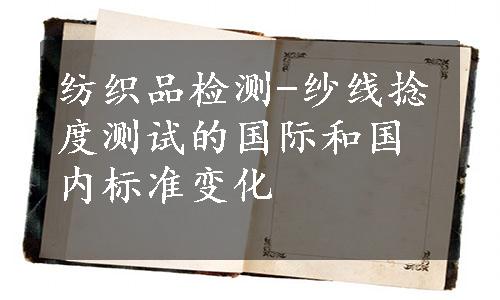 纺织品检测-纱线捻
度测试的国际和国
内标准变化